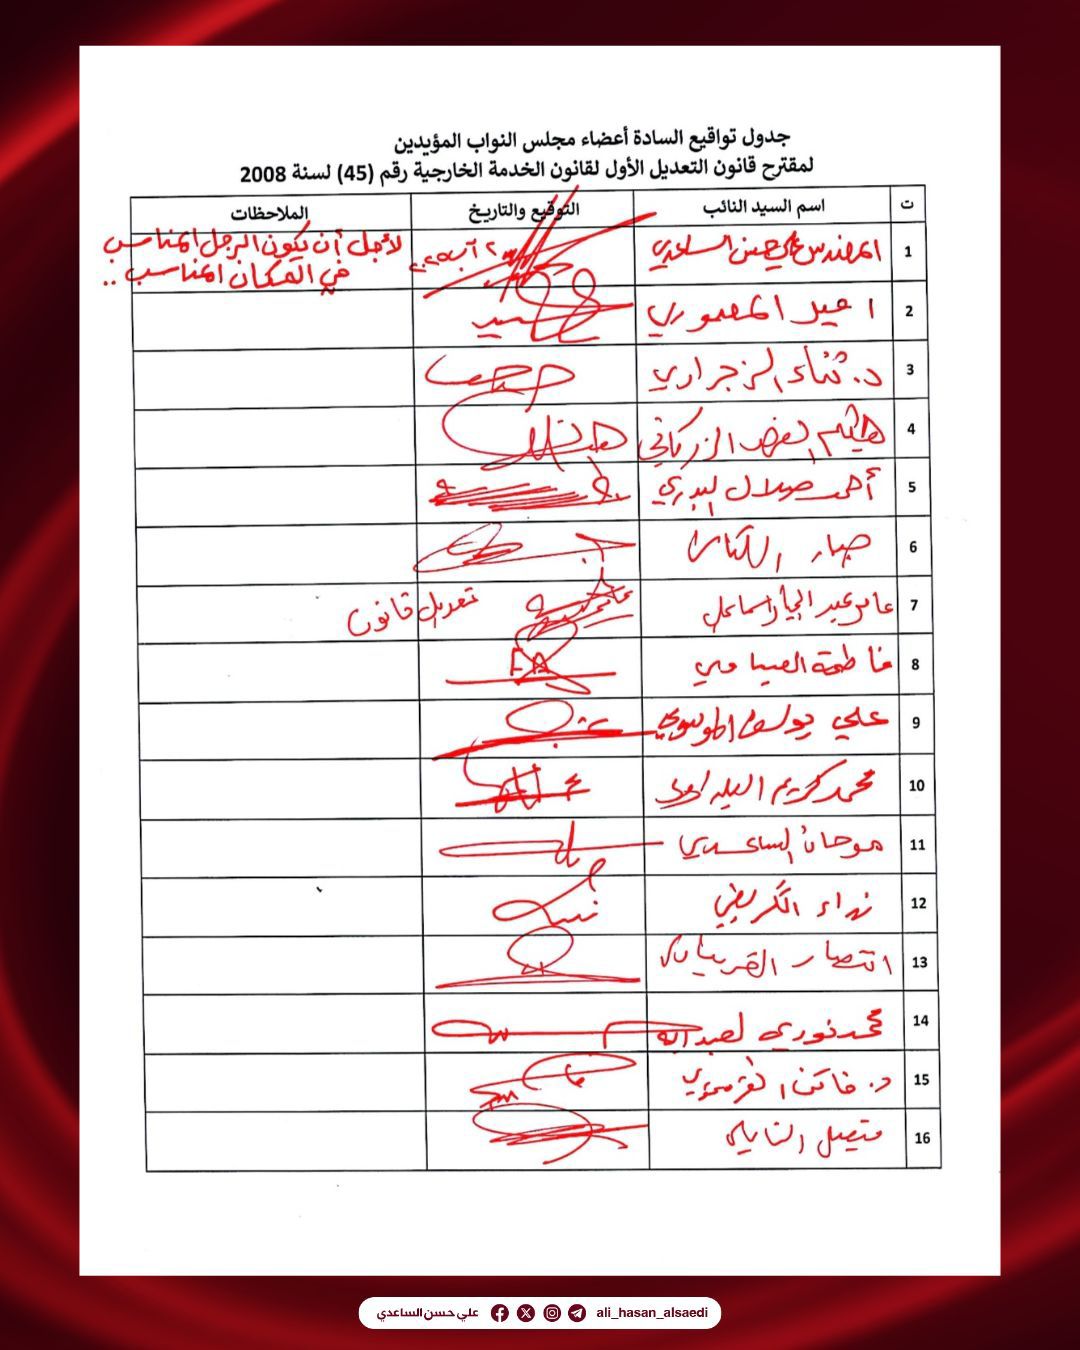 جدول تواقيع السادة أعضاء مجلس النواب المؤيدين
لمقترح قانون التعديل الأول لقانون الخدمة الخارجية رقم (45) لسنة 2008
ت اسم السيد النائب التوقيع والتاريخ الملاحظات
1 المهندس علي حسن الساعدي ٢ آب ٢٠٢٥ لأجل أن يكون الرجل المناسب
في المكان المناسب ..
2 المعموري
3 د. ثناء الزجراوي
4 هيثم الزركاني
5 أحمد صلال البدري
6 جبار الكناني
7 عامر عبد الجبار اسماعيل تعديل قانون
8 فاطمة العيساوي FA
9 علي يوسف الموسوي
10 محمد كريم البلداوي
11 موحان الساعدي
12 نداء الكريطي
13 انتصار
14 محمد نوري العبد ربه
15 د. فاتن القره غولي
16 فيصل النايلي
علي حسن الساعدي ali_hasan_alsaedi